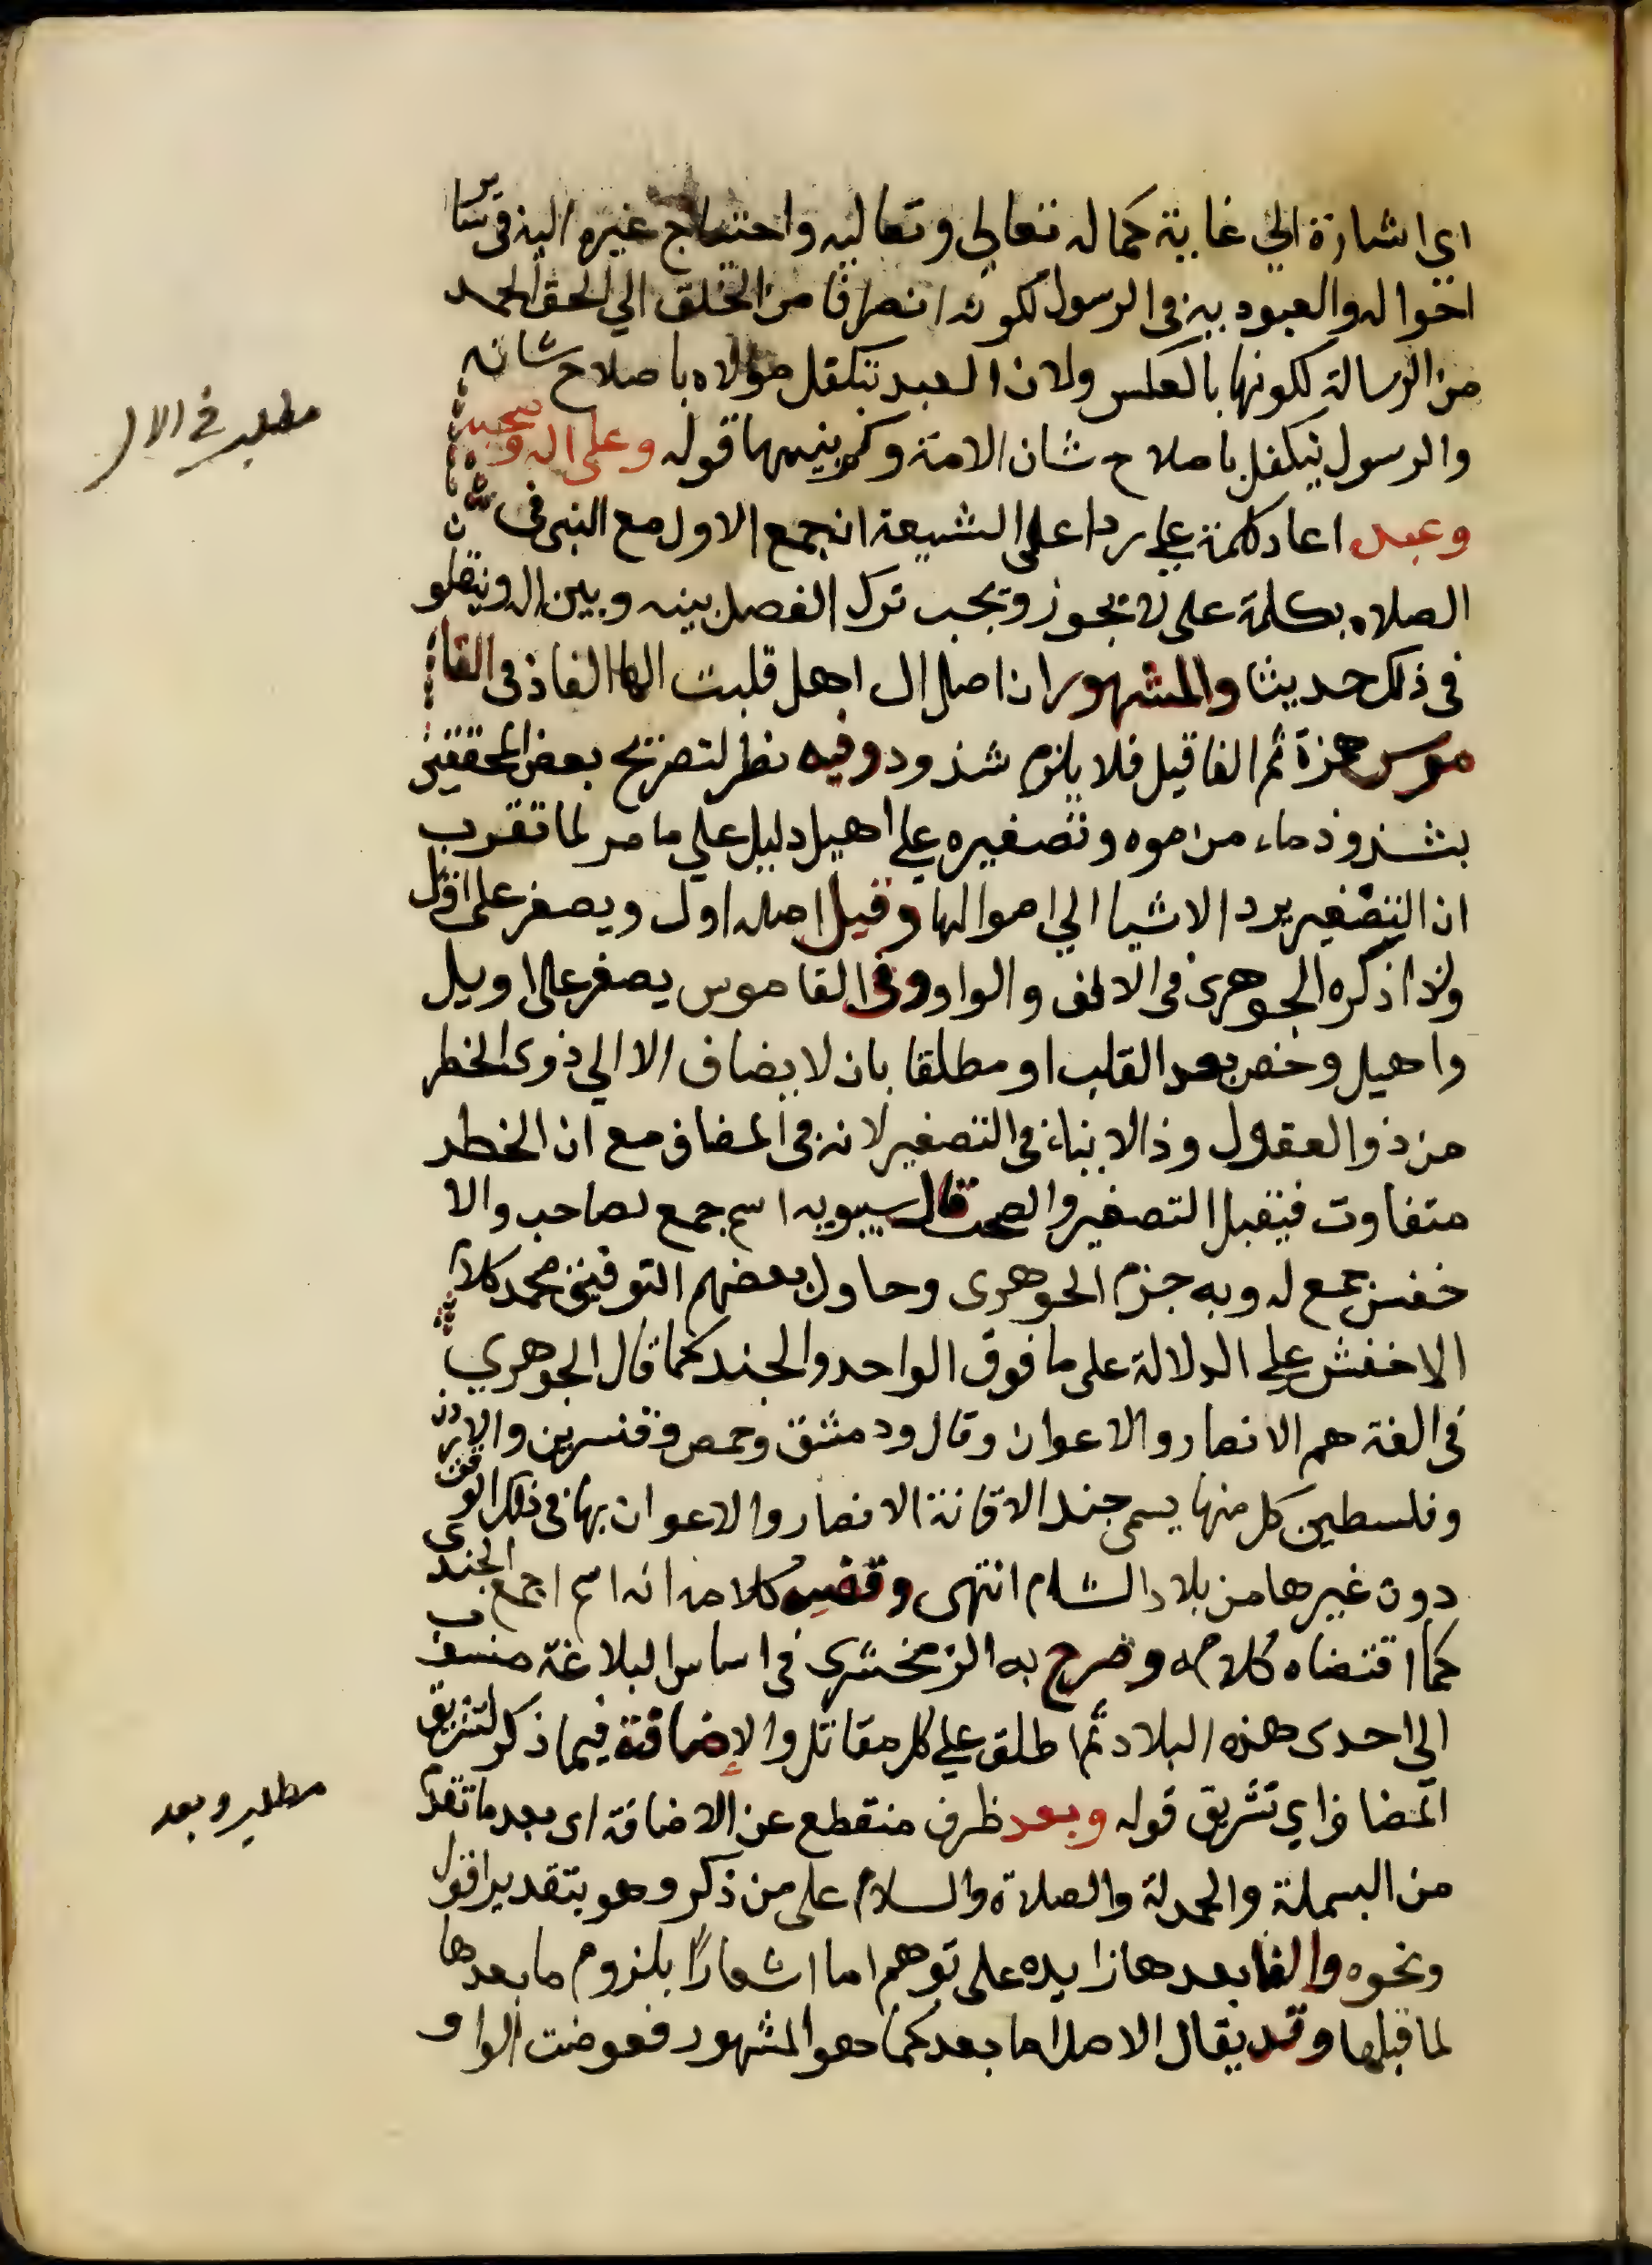 اى اشارة الي غاية كماله تعالي وتعاليه واحتياج غيره اليه فى ساير
احواله والعبودية فى الرسول لكونه انصرافا من الخلق الي الحق اجمد
من الرسالة لكونها بالعكس ولان العبد تتكفل مولاه باصلاح شانه
والرسول يتكفل باصلاح شان الامة وكم بينهما قوله وعلى اله وصحبه
وعبد اعاد كلمة علي ردا على الشيعة ان جمع الاول مع النبى فى شان
الصلاه بكلمة على لا يجوز ويجب ترك الفصل بينه وبين اله وينقلو
فى ذلك حديثا والمشهور ان اصل ال اهل قلبت الها الفا ذفى القا
موس همزة ثم الفا قيل فلا يلزم شذوذ وفيه نظر لتصريح بعض المحققين
بشذوذ ماء من موه وتصغيره علي اهيل دليل علي ما مر لما تقرب
ان التصغير يرد الاشيا الي اصوالها وقيل اصله اول ويصغر على اؤل
ولذا ذكره الجوهرى فى الالف والواو وفى القاموس يصغر على اويل
واهيل وخص بعد القلب او مطلقا بان لا يضاف الا الي ذوى الخطر
من ذوا العقول وذا الابناء فى التصغير لانه فى المضاف مع ان الخطر
متفاوت فيقبل التصغير والصحب قال سيبويه اسم جمع لصاحب والا
خفش جمع له وبه جزم الجوهرى وحاول بعضهم التوفيق بحمد كلام
الاخفش علي الدلالة على ما فوق الواحد والجند كما قال الجوهري
فى الغة هم الانصار والاعوان وقال ودمشق وحمص وقنسرين والاردن
وفلسطين كل منها يسمى جندا لاقانة الانصار والاعوان بها فى ذلك الوقت
دون غيرها من بلاد الشام انتهى وقضيه كلامه انه اسم اجمع الجندى
كما اقتضاه كلامه وصرح به الزمخشرى فى اساس البلاغة منسوب
الي احدى هذه البلاد ثم اطلق علي كل مقاتل والإضافة فيما ذكر لتشريق
المضاف اي تشريق قوله وبعد ظرف منقطع عن الاضافة اى بعد ما تقدم
من البسملة والحمدلة والصلاة والسلام على من ذكر وهو بتقدير اقول
ونحوه والفا بعدها زايده على توهم اما اشعارًا بلزوم ما بعدها
لما قبلها وقد يقال الاصل اما بعد كما هو المشهور فعوضت الواو
مطلب فى الال
مطلب وبعد